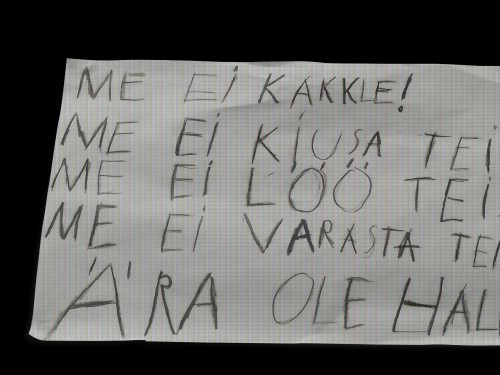 ME EI KAKKLE!
ME EI KIUSA TEI
ME EI LÖÖ TEI
ME EI VARASTA TEI
ÄRA OLE HAL